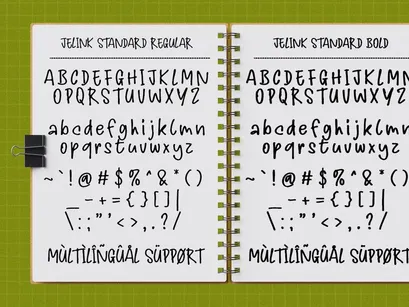 JELINK STANDARD REGULAR
ABCDEFGHIJKLMN
OPQRSTUVWXYZ
abcdefghijklmn
opqrstuvwxyz
~`!@#$%^&*()
_-+={}[]|
\:;"'<>,.?/
MÙLTÌLÎÑGÛÂL SÜPPØRT
JELINK STANDARD BOLD
ABCDEFGHIJKLMN
OPQRSTUVWXYZ
abcdefghijklmn
opqrstuvwxyz
~`!@#$%^&*(
_-+={}[]|
\:;"'<>,.?/
MÙLTÌLÎÑGÛÂL SÜPPØRT